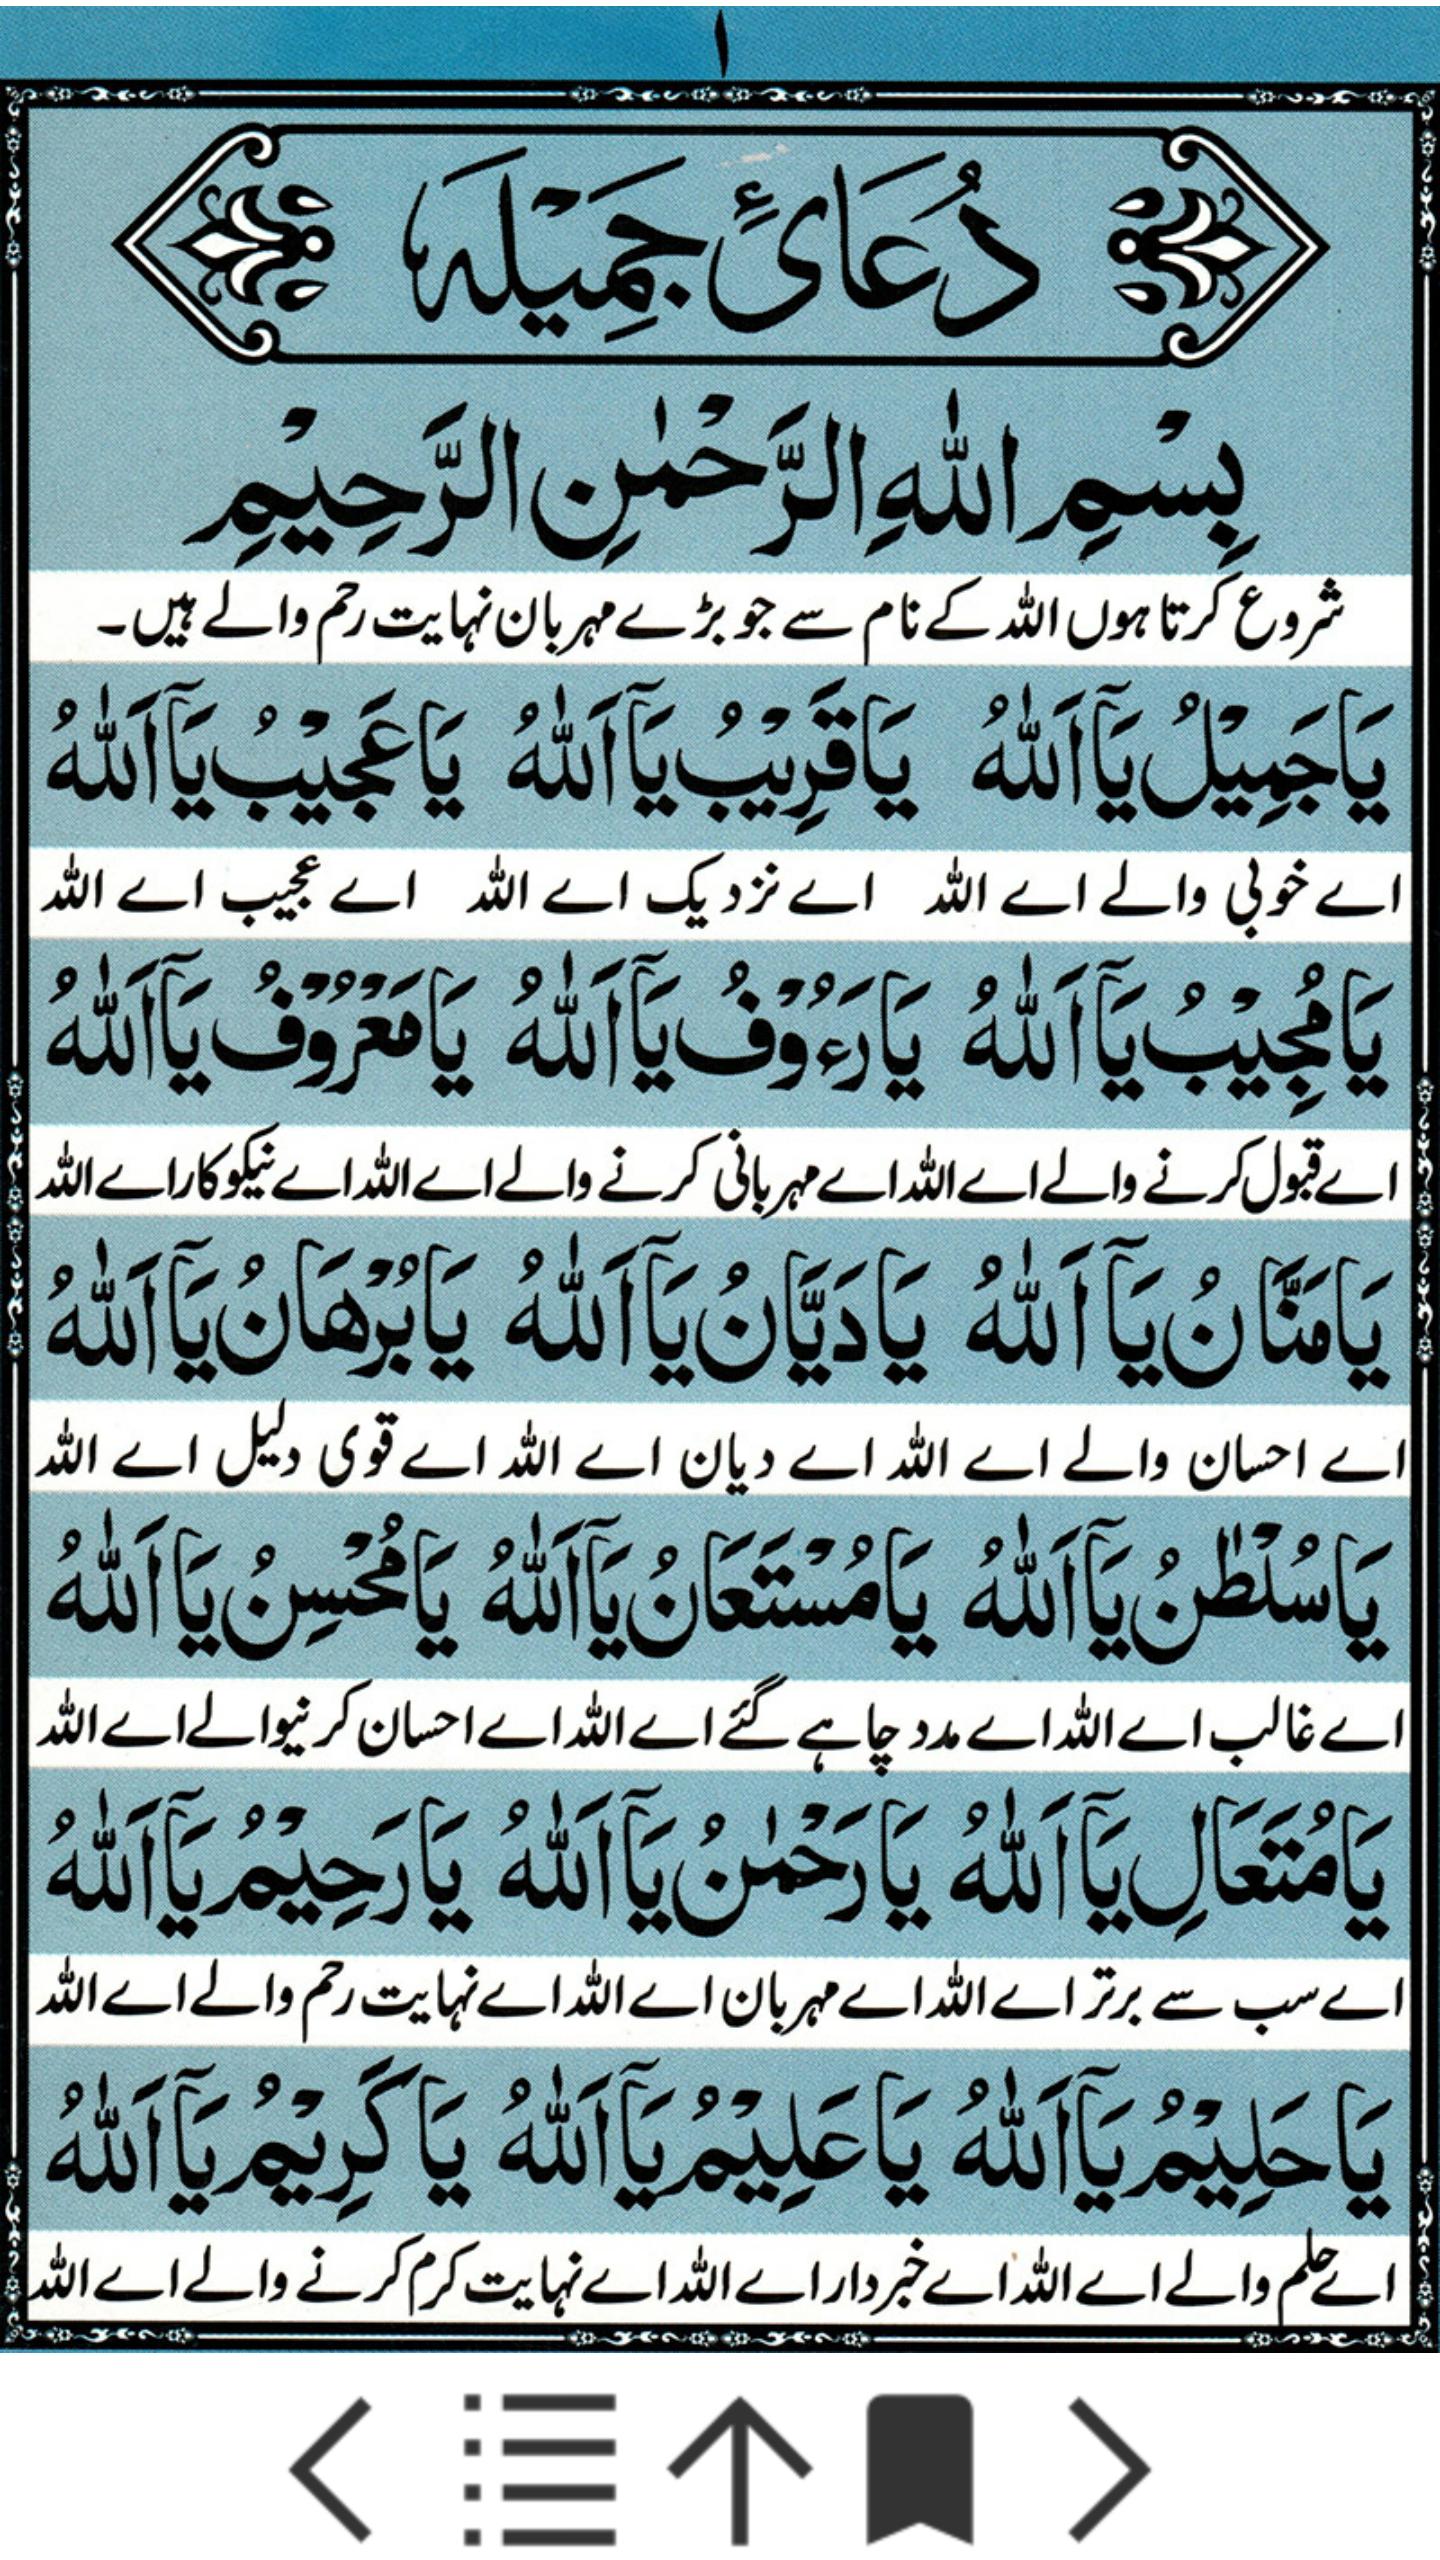 ١
دُعَائُ جَمِيْلَه
بِسْمِ اللّٰهِ الرَّحْمٰنِ الرَّحِيْمِ
شروع کرتا ہوں اللہ کے نام سے جو بڑے مہربان نہایت رحم والے ہیں۔
يَا جَمِيْلُ يَآ اَللّٰهُ يَا قَرِيْبُ يَآ اَللّٰهُ يَا عَجِيْبُ يَآ اَللّٰهُ
اے خوبی والے اے اللہ اے نزدیک اے اللہ اے عجیب اے اللہ
يَا مُجِيْبُ يَآ اَللّٰهُ يَا رَءُوْفُ يَآ اَللّٰهُ يَا مَعْرُوْفُ يَآ اَللّٰهُ
اے قبول کرنے والے اے اللہ اے مہربانی کرنے والے اے اللہ اے نیکوکار اے اللہ
يَا مَنَّانُ يَآ اَللّٰهُ يَا دَيَّانُ يَآ اَللّٰهُ يَا بُرْهَانُ يَآ اَللّٰهُ
اے احسان والے اے اللہ اے دیان اے اللہ اے قوی دلیل اے اللہ
يَا سُلْطٰنُ يَآ اَللّٰهُ يَا مُسْتَعَانُ يَآ اَللّٰهُ يَا مُحْسِنُ يَآ اَللّٰهُ
اے غالب اے اللہ اے مدد چاہے گئے اے اللہ اے احسان کرنیوالے اے اللہ
يَا مُتَعَالِ يَآ اَللّٰهُ يَا رَحْمٰنُ يَآ اَللّٰهُ يَا رَحِيْمُ يَآ اَللّٰهُ
اے سب سے برتر اے اللہ اے مہربان اے اللہ اے نہایت رحم والے اے اللہ
يَا حَلِيْمُ يَآ اَللّٰهُ يَا عَلِيْمُ يَآ اَللّٰهُ يَا كَرِيْمُ يَآ اَللّٰهُ
اے حلم والے اے اللہ اے خبردار اے اللہ اے نہایت کرم کرنے والے اے اللہ